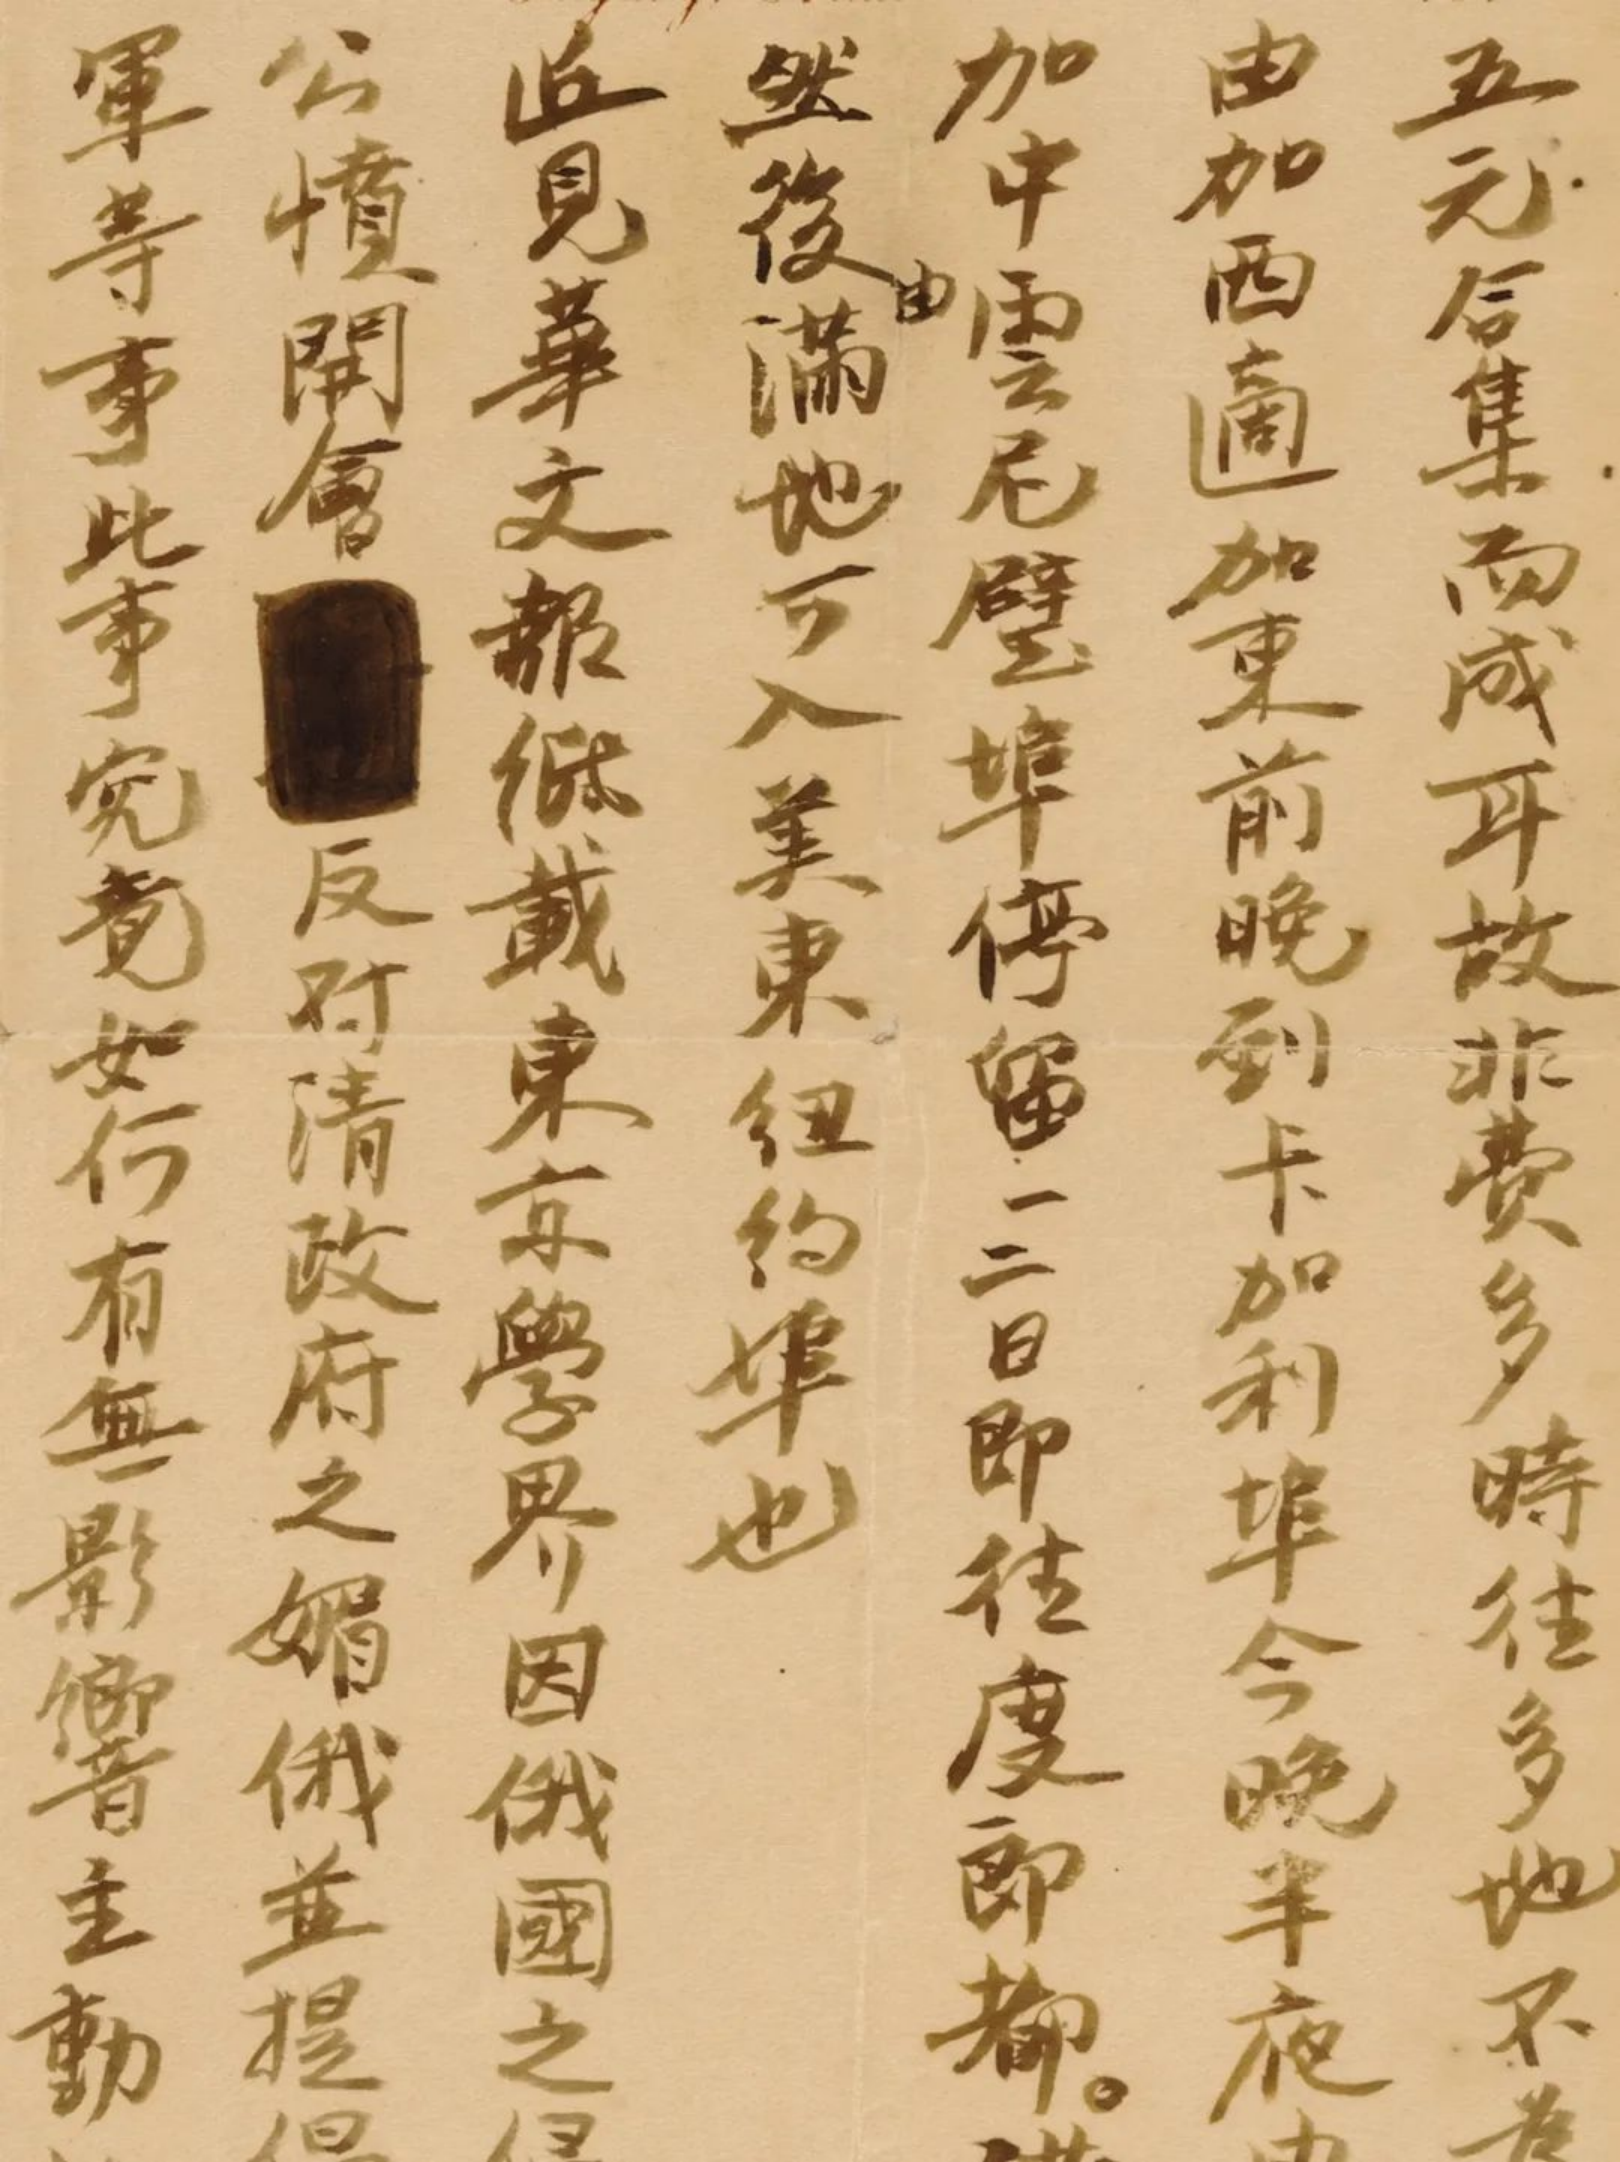 五元合集而成耳故非費多時往多地不為
由加西適加東前晚到卡加利埠今晚半夜由
加中雲尼璧埠停留一二日即往度郎都。満
然後由滿地可入美東紐約埠也
近見華文報紙載東京學界因俄國之侵
公憤開會反対清政府之媚俄並提倡
軍等事此事究竟如何有無影響主動